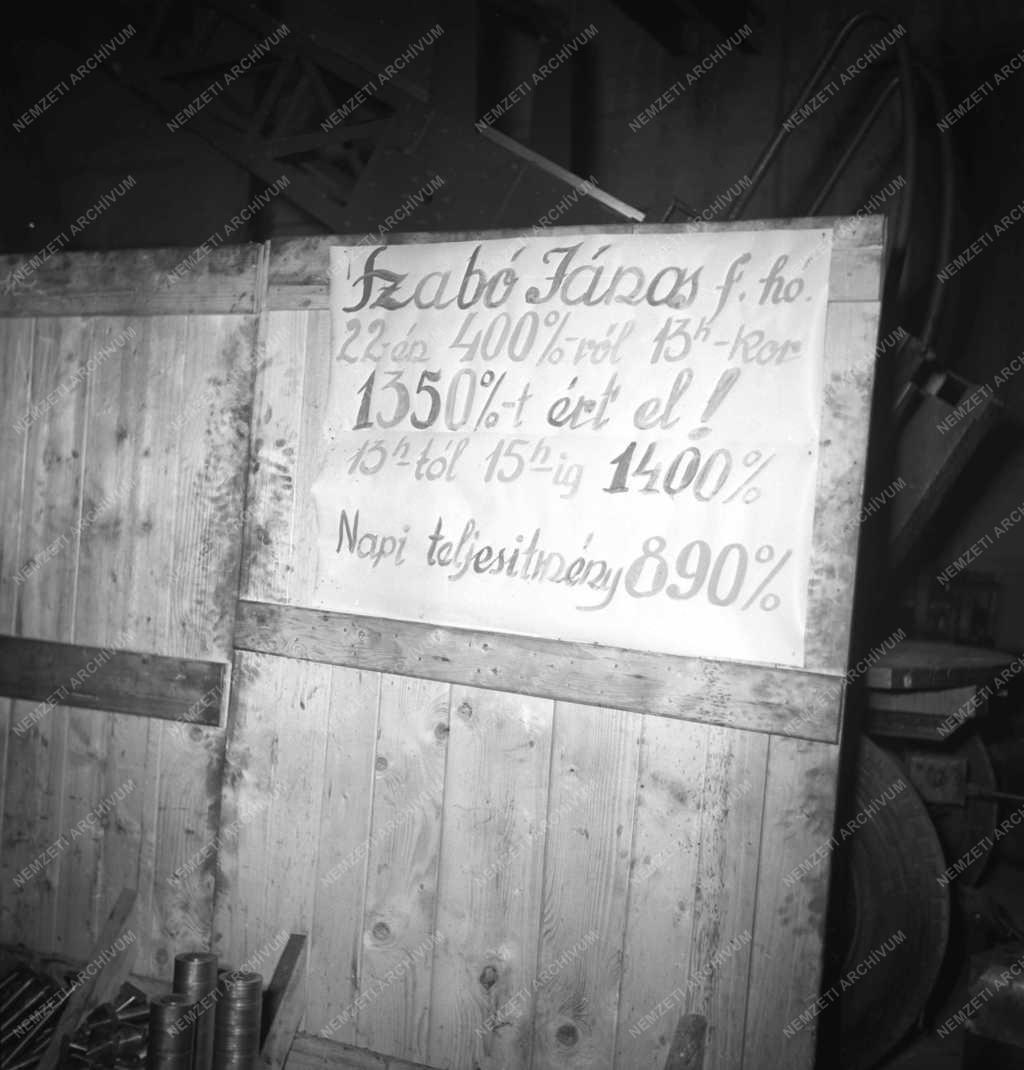 Szabó János f. hó.
22-én 400%-ról 13ʰ-kor
1350%-t ért el!
13ʰ-tól 15ʰ-ig 1400%
Napi teljesitmény 890%
NEMZETI ARCHÍVUM